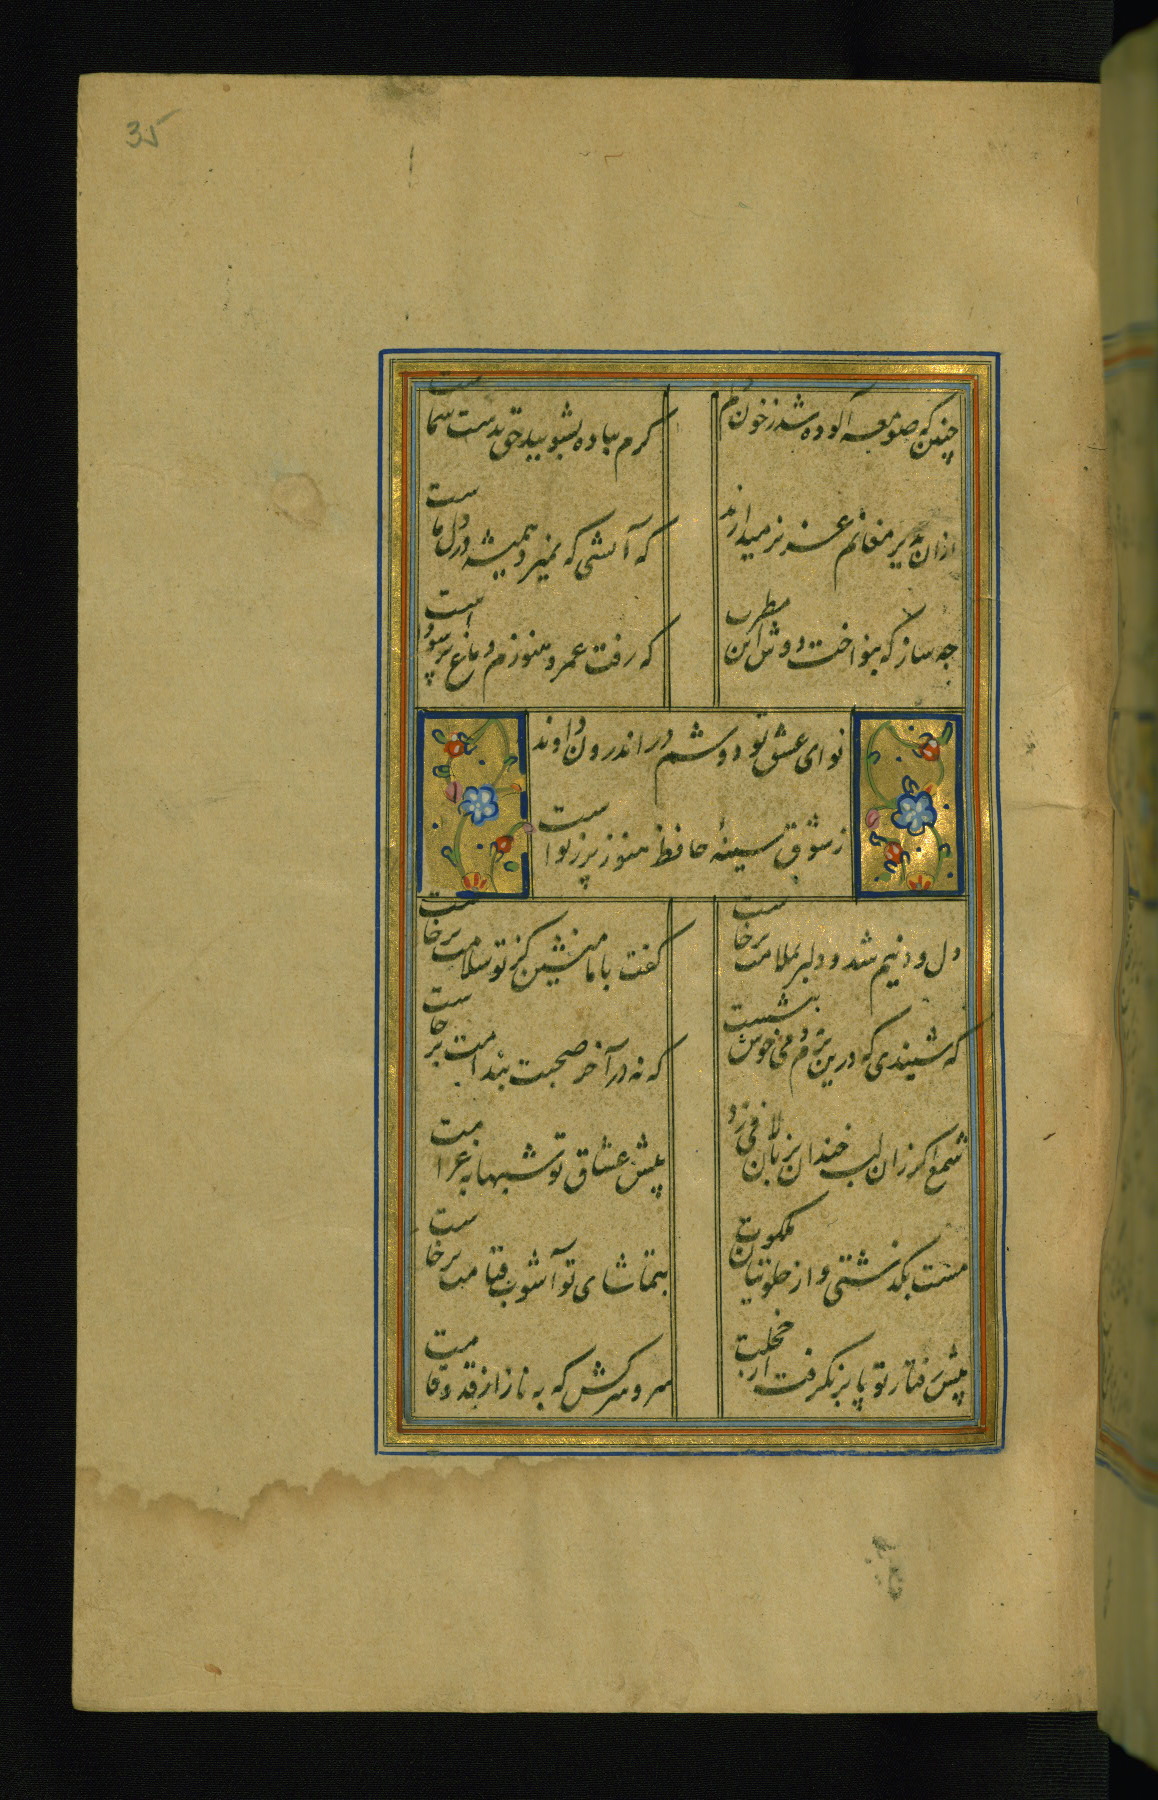 35
چنین که صومعه آلوده شد ز خون دلم
کرم بباده بشویید حق بدست شماست
ازان بدیر مغانم عزیز میدارند
که آتشی که نمیرد همیشه در دل ماست
چه ساز که بنواخت دوش این مطرب
که رفت عمر و هنوزم دماغ پرسوداست
نوای عشق تو دوشم در اندرون دادند
ز شوق سینهٔ حافظ هنوز پر ز نواست
دل و دنیم شد و دلبر بملامت برخاست
کفت با ما منشین کز تو سلامت برخاست
که شیندی که درین بزم دمی خوش بنشست
که نه در آخر صحبت بندامت برخاست
شمع اکر زان لب خندان بزبان لافی زد
پیش عشاق تو شبها بغرامت
مست بکذشتی و از خلوتیان ملکوت
بتماشای تو آشوب قیامت برخاست
پیش رفتار تو پا بر نکرفت از خجلت
سرو سرکش که به ناز از قد و قامت